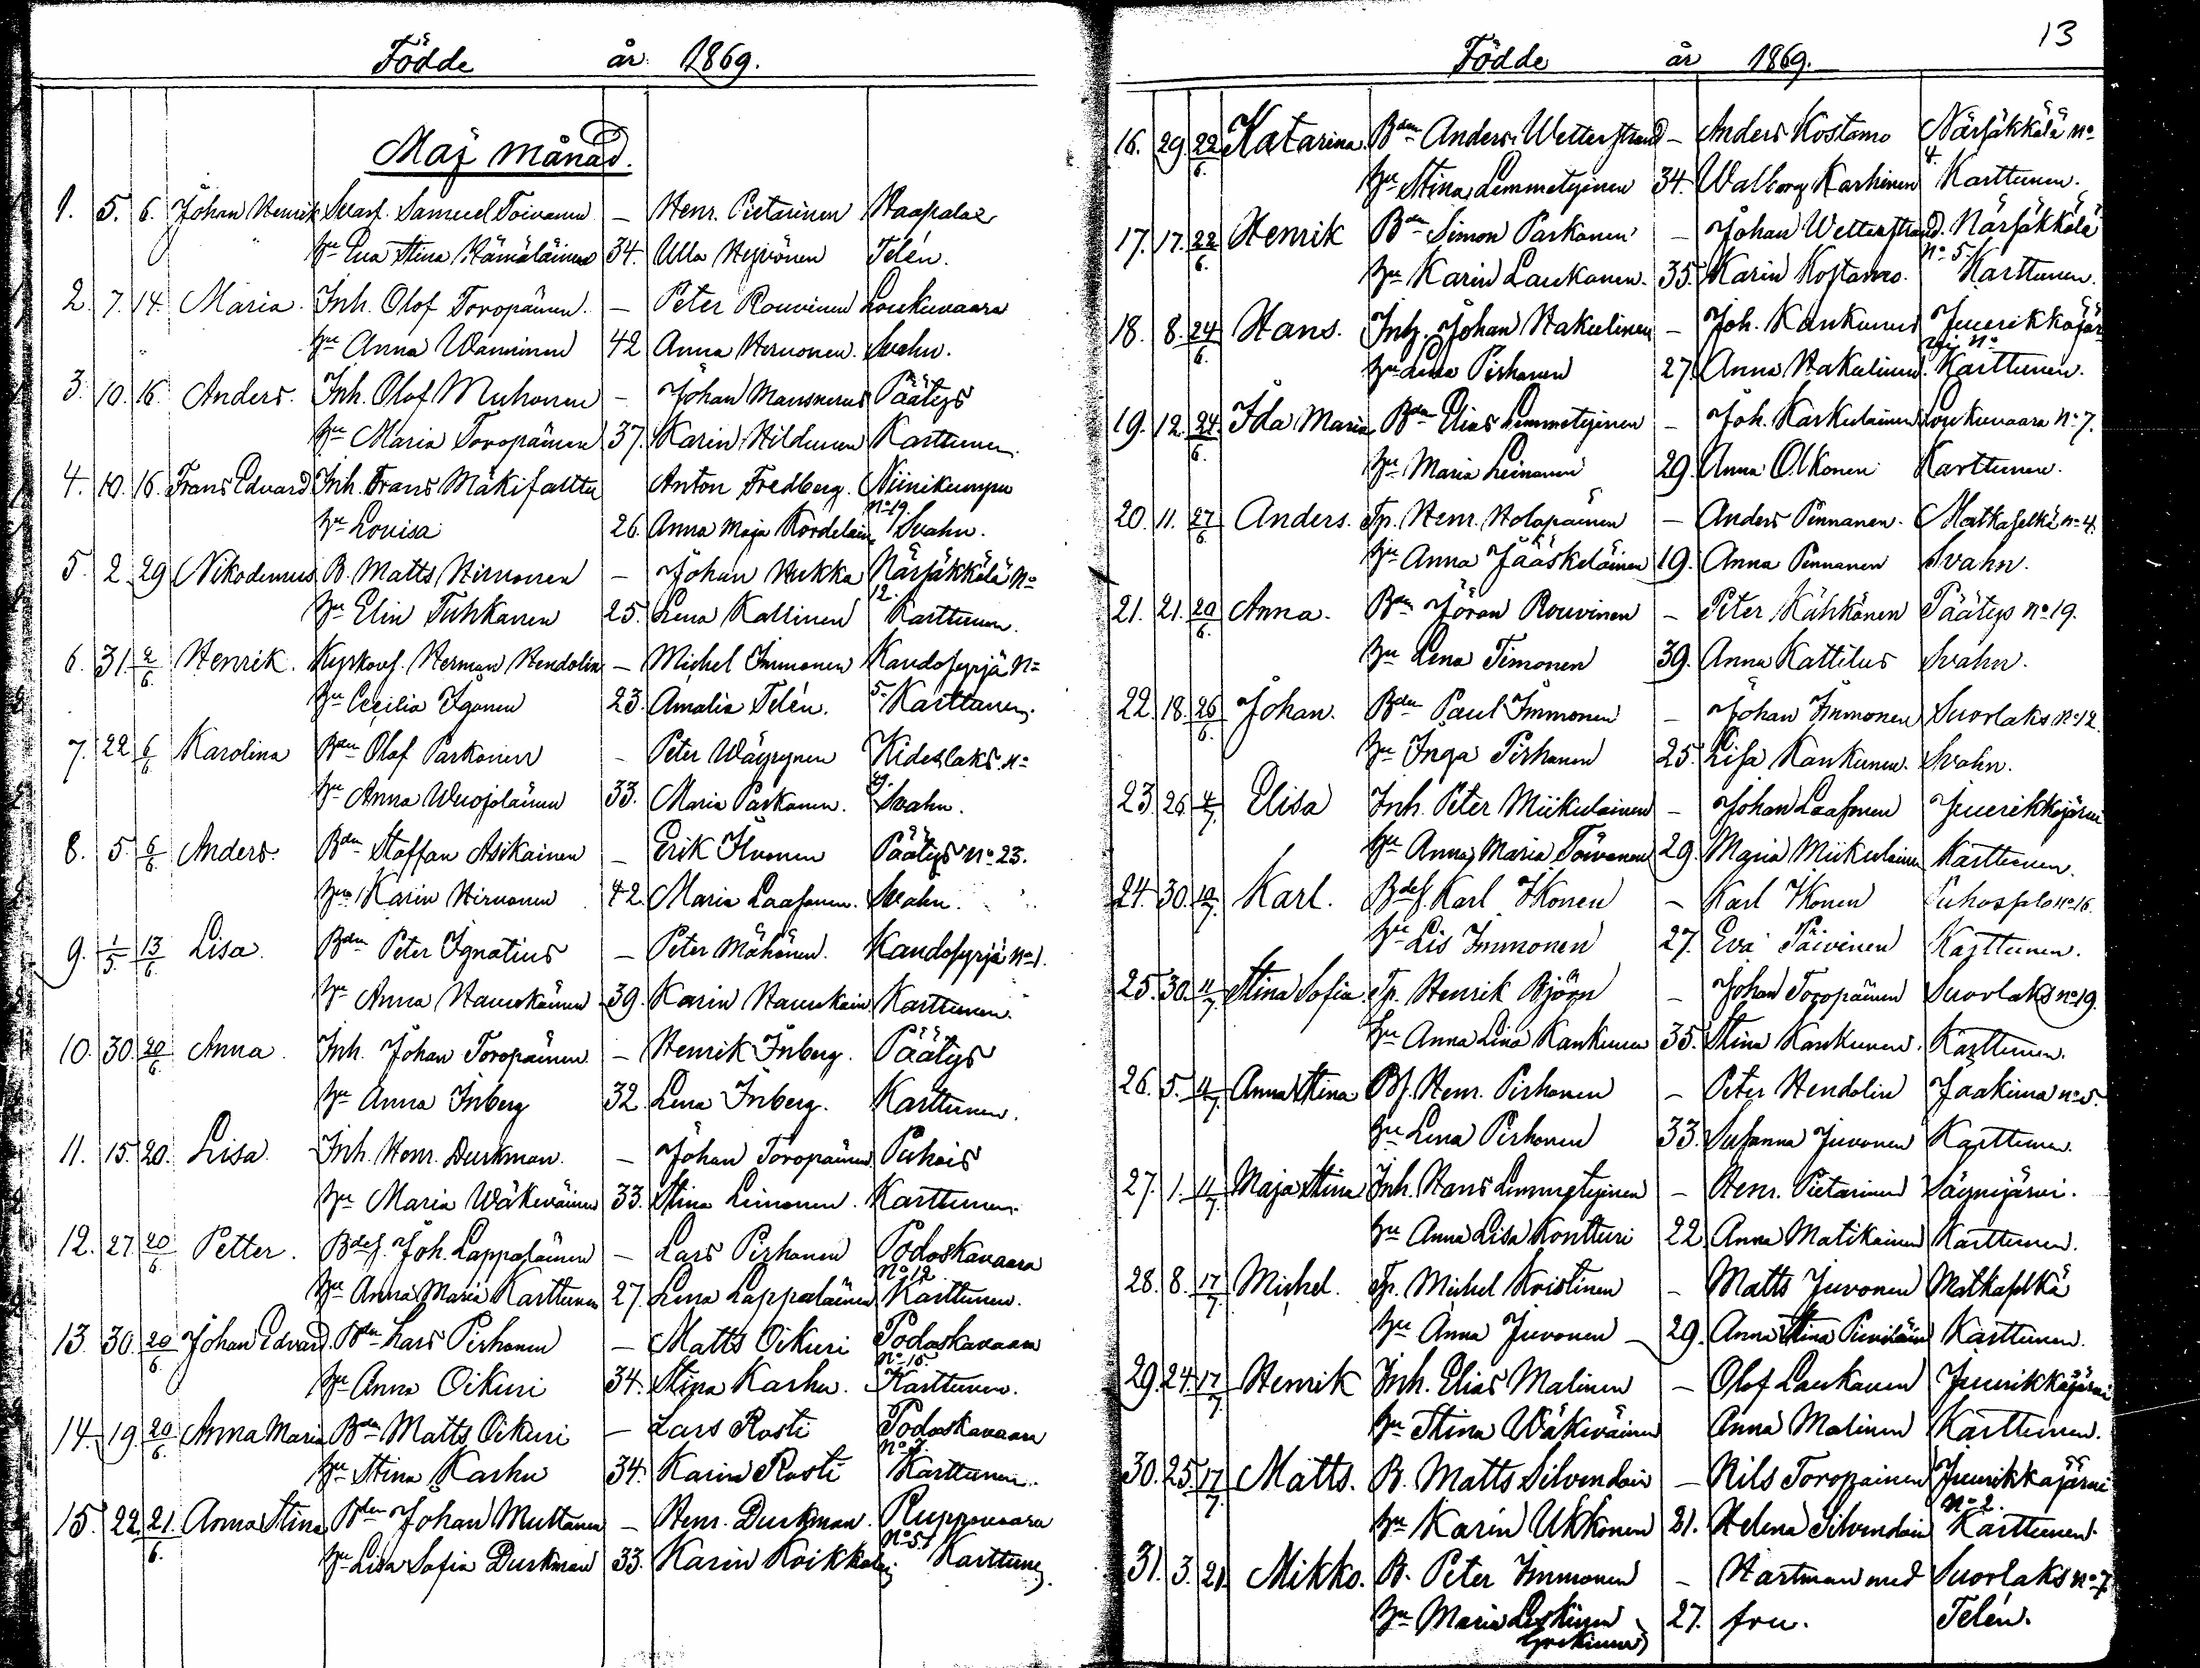 Födde år 1869.
Maj månad.
1. 5. 6. Johan Henrik Svarf. Samuel Toivanen – Henr. Pietarinen Haapalax
hu Eva Stina Hämäläinen 34. Ulla Hyvönen Telén.
2. 7. 14. Maria. Inh. Olof Toropainen. – Peter Rouvinen Loukuvaara
hu Anna Wänninen 42 Anna Hirvonen. Svahn.
3. 10. 16. Anders. Inh. Olof Muhonen – Johan Mansnerus Päätys
hu Maria Toropainen 37. Karin Hildunen Karttunen.
4. 10. 16. Frans Edvard Inh. Frans Mäkisalttu Anton Fredberg. Niinikumpu
No 19.
hu Lovisa 26. Anna Maja Kordelain Svahn.
5. 2. 29 Nikodemus B. Matts Hirvonen – Johan Hukka Närsäkkälä No
12.
hu Elin Tuhkanen 25. Lena Kallinen Karttunen.
6. 31. 2/6 Henrik. Kyrkovf. Herman Hendolin – Michel Immonen Kandosyrjä No
hu Cecilia Igonen 23. Amalia Telén. 5. Karttunen.
7. 22 6/6 Karolina Bdn Olof Parkonen – Peter Wäyrynen Kideslaks No
hu Anna Wuojolainen 33. Maria Parkonen. 9. Svahn.
8. 5. 6/6 Anders. Bdn Staffan Asikainen – Erik Ihvonen Päätys No 23.
hu Karin Hirvonen 42. Maria Laasonen. Svahn.
9. 1/5. 13/6 Lisa. Bdn Peter Ignatius – Peter Mähönen. Kandosyrjä No 1.
hu Anna Hauskainen 39. Karin Hauskain Karttunen.
10. 30. 20/6. Anna. Inh. Johan Toropainen – Henrik Inberg. Päätys
hu Anna Inberg 32. Lena Inberg. Karttunen.
11. 15. 20. Lisa. Inh. Henr. Durkman. – Johan Toropainen Puhois
hu Maria Wäkeväinen 33. Stina Leinonen. Karttunen.
12. 27. 20/6 Petter. Bdes. Joh. Lappalainen – Lars Pirhonen Podoskavaara
No 12.
hu Anna Maria Karttunen 27. Lena Lappalainen Karttunen.
13. 30. 20/6. Johan Edvard. Bdn Lars Pirhonen – Matts Oikuri Podoskavaara
No 15.
hu Anna Oikuri 34. Stina Karhu. Karttunen.
14. 19. 20/6. Anna Maria Bdn Matts Oikuri – Lars Rosti Podoskavaara
hu Stina Karhu 34. Karin Rosti Karttunen.
15. 22. 21/6. Anna Stina Bdn Johan Muttanen – Henr. Durkman. Ruppovaara
No 5.
hu Lisa Sofia Durkman 33. Karin Koikkalai Karttunen.
13
Födde år 1869.
16. 29. 22/6. Katarina. Bdn Anders Wetterstrand – Anders Kostamo Närsäkkälä No
4.
hu Stina Lemmetyinen 34. Walborg Karhinen Karttunen.
17. 17. 22/6. Henrik Bdn Simon Parkonen – Johan Wetterstrand. Närsäkkälä
No 5.
hu Karin Laukanen. 35. Karin Kostamo. Karttunen.
18. 8. 24/6. Hans. Inh. Johan Hakulinen – Joh. Kankunen Juurikkajär
vi No
hu Lena Pirhonen 27. Anna Hakulinen. Karttunen.
19. 12. 24/6. Ida Maria Bdn Elias Lemmetyinen – Joh. Karkulainen Loukuvaara No 7.
hu Maria Leinonen 29. Anna Olkonen Karttunen.
20. 11. 27/6 Anders. Tp. Henr. Holopainen – Anders Pennanen. Matkaselkä No 4.
hu Anna Jääskeläinen 19. Anna Pennanen Svahn.
21. 21. 20/6. Anna. Bdn Jöran Rouvinen – Peter Kähkönen Päätys No 19.
hu Lena Timonen 39. Anna Kattilus Svahn.
22. 18. 26/6. Johan. Bdn Paul Immonen – Johan Immonen Suorlaks No 12.
hu Inga Pirhonen 25. Lisa Kankunen. Svahn.
23. 26. 4/7. Elisa Inh. Peter Miikulainen – Johan Laasonen Juurikkajärvi
hu Anna Maria Toivonen 29. Maria Miikulainen Karttunen.
24. 30. 10/7. Karl. Bdes. Karl Ikonen – Karl Ikonen Puhossalo No 16.
hu Lis Immonen 27. Eva Päivinen Karttunen.
25. 30. 11/7. Stina Sofia Tp. Henrik Björn – Johan Toropainen Suorlaks No 19.
hu Anna Lisa Kankunen 35. Stina Kankunen. Karttunen.
26. 5. 11/7. Anna Stina Bs. Henr. Pirhonen – Peter Hendolin Jaakima No 5.
hu Lena Pirhonen 33. Susanna Juvonen Karttunen.
27. 1. 11/7. Maja Stina Inh. Hans Lemmetyinen – Henr. Pietarinen Säynejärvi.
hu Anna Lisa Kontturi 22. Anna Matikainen Karttunen.
28. 8. 17/7. Michel. Tp. Michel Kristinen – Matts Juvonen Matkaselkä
hu Anna Juvonen – 29. Anna Stina Karttunen.
29. 24. 17/7. Henrik Inh. Elias Malinen – Olof Laukanen Juurikkajärvi
hu Stina Wäkeväinen Anna Malinen Karttunen.
30. 25. 17/7. Matts. B. Matts Silvendoin – Nils Toropainen Juurikkajärvi
No 2.
hu Karin Ukkonen 21. Helena Silvendoin Karttunen.
31. 3. 21. Mikko. B. Peter Immonen – Hartman med Suorlaks No 7.
hu Maria Leskinen 27. fru. Telén.